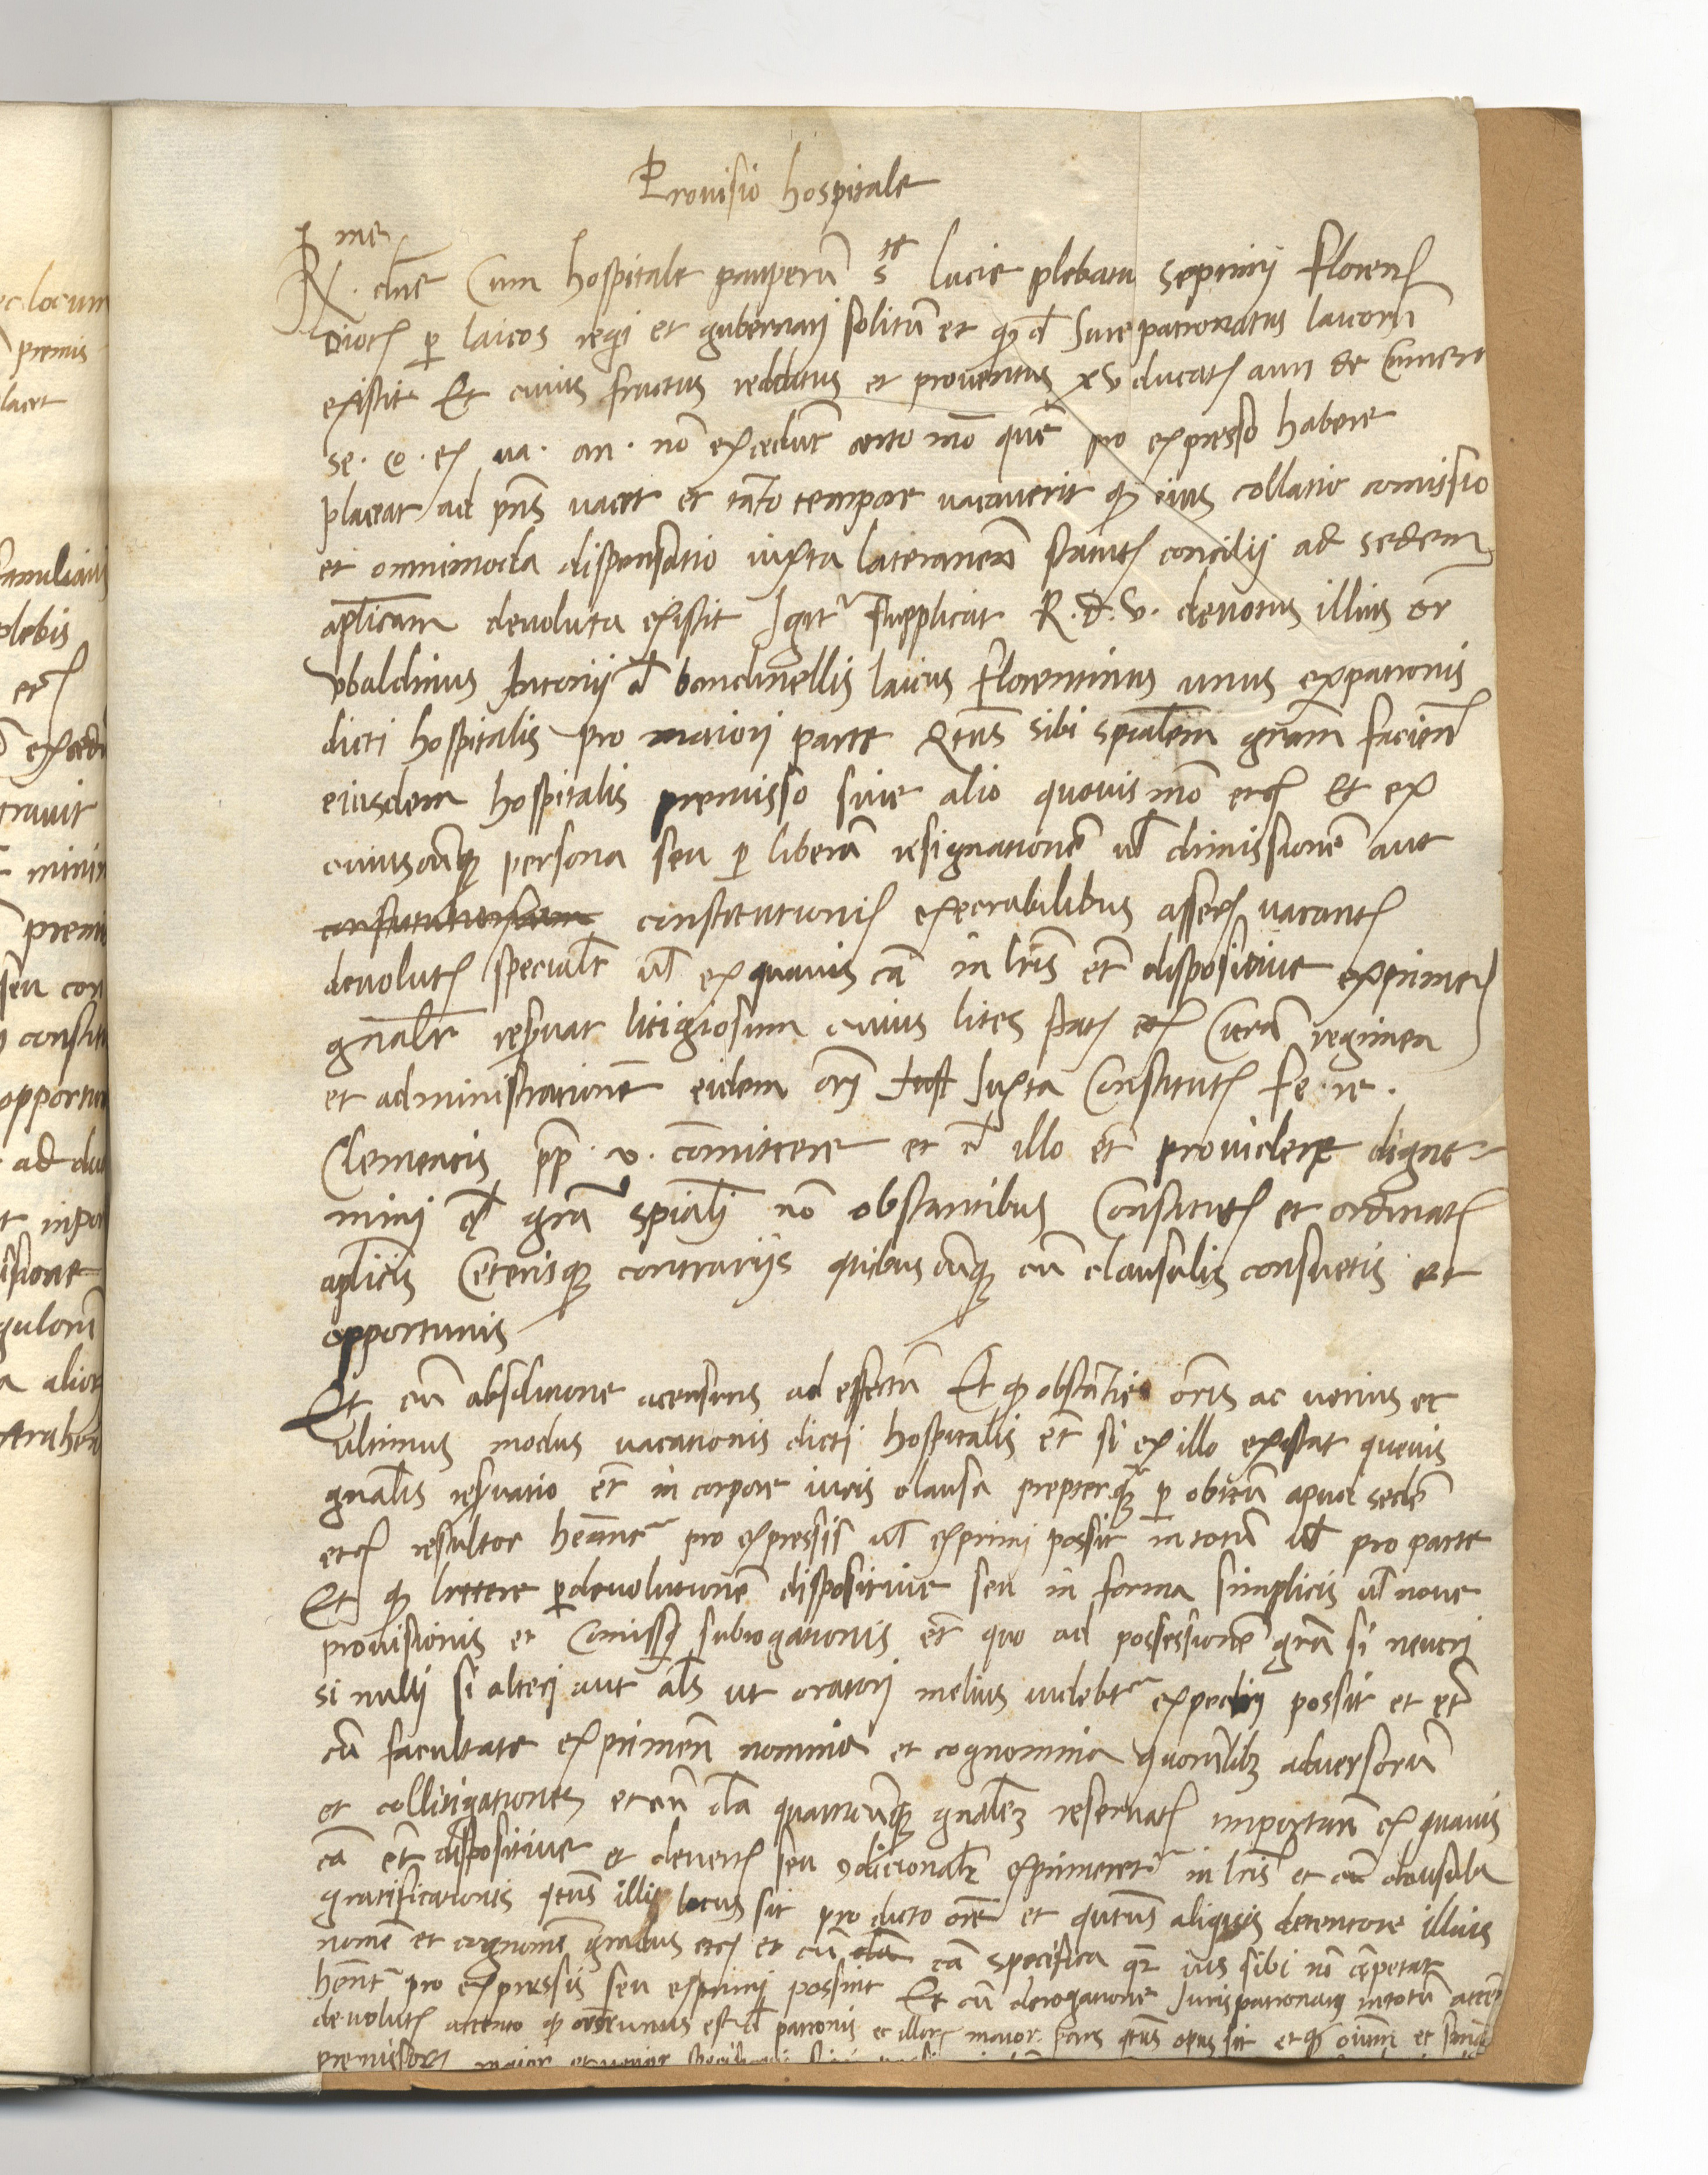 Provisio hospitale
R.me dne Cum hospitale pauperũ Ste lucie plebatu septimij florenȝ
diocȝ p laicos regi et gubernarj solitũ et qđ đ Jurepatronatus laicorũ
existit Et cuius fructus redditus et proventus xv ducatȝ auri de camera
se. co. ex ua. an. nõ excedũt certo mõ quẽ pro expresso habere
placeat ad pñs vacet et tãto tempore vacaverit qđ eius collatio comissio
et omnimoda dispensatio iuxta lateraneñ statutȝ concilij ad sedem
aplicam devoluta existit Igit supplicat R.D.V. devotus illius or
Ubaldinus Antonij đ bandinellis laicus florentinus unus ex patronis
dicti hospitalis pro maiori parte Qtus sibi spialem gnam facieñ
eiusdem hospitalis premisso sive alio quovis mõ etcȝ Et ex
cuiuscũqȝ persona seu p liberã resignationẽ vl dimissionẽ aut
constitutionȝ execrabilibus asserȝ vacantȝ
devolutȝ specialr vl ex quavis cã in lris et dispositive exprimeȝ
gnalr reservat litigiosum cuius lites statȝ etcȝ Curã regimen
et administrationẽ eidem orj Juxta Constitutȝ fe. re.
Clementis pp. v. comittere et đ illo et providere digne
mini đ gra spialj nõ obstantibus Constitutȝ et ordinatȝ
aplicis Ceterisqȝ contrarijs quibuscũqȝ cũ clausulis consuetis et
opportunis
Et cũ absolutione acensuris ad effectũ Et qđ obstãtie oris ac verius et
ultimus modus vacationis dicti hospitalis et si ex illo existat quevis
gnalis reservatio et in corpore iuris clausa preterqȝ p obitũ apud sedẽ
etcȝ resultet heant pro expressis vl exprimi possit in totũ vl pro parte
Et qđ littere p devolutionẽ dispositive seu in forma simplicis vl nove
provisionis et Comissȝ subrogationis et quo ad possessionẽ gra si neutri
si nulli si alteri aut als ut oratorj melius videbt expedirj possit et et
cũ facultate exprimen nomina et cognomina quorũlibȝ adversorũ
et collitigationes et cũ cla quacũqȝ gnalem reservatȝ importan ex quavis
cã et dispositive et deventȝ seu conditionalr exprimeret in lris et cũ clausula
gratificationis qtus illis locus sit pro dicto ore et qutus aliquis detentore illius
nomẽ et cognomẽ gradus etcȝ et cũ cla cã specifica qȝ ius sibi nõ cõpetat
hent pro expressis seu exprimj possint Et cũ derogatione Jurispatronatus in totũ atteñ
devolutȝ attento qđ unus est đ patronis et illorȝ maior pars qtus opus sit et qđ oium et
premissorȝ maior et verior